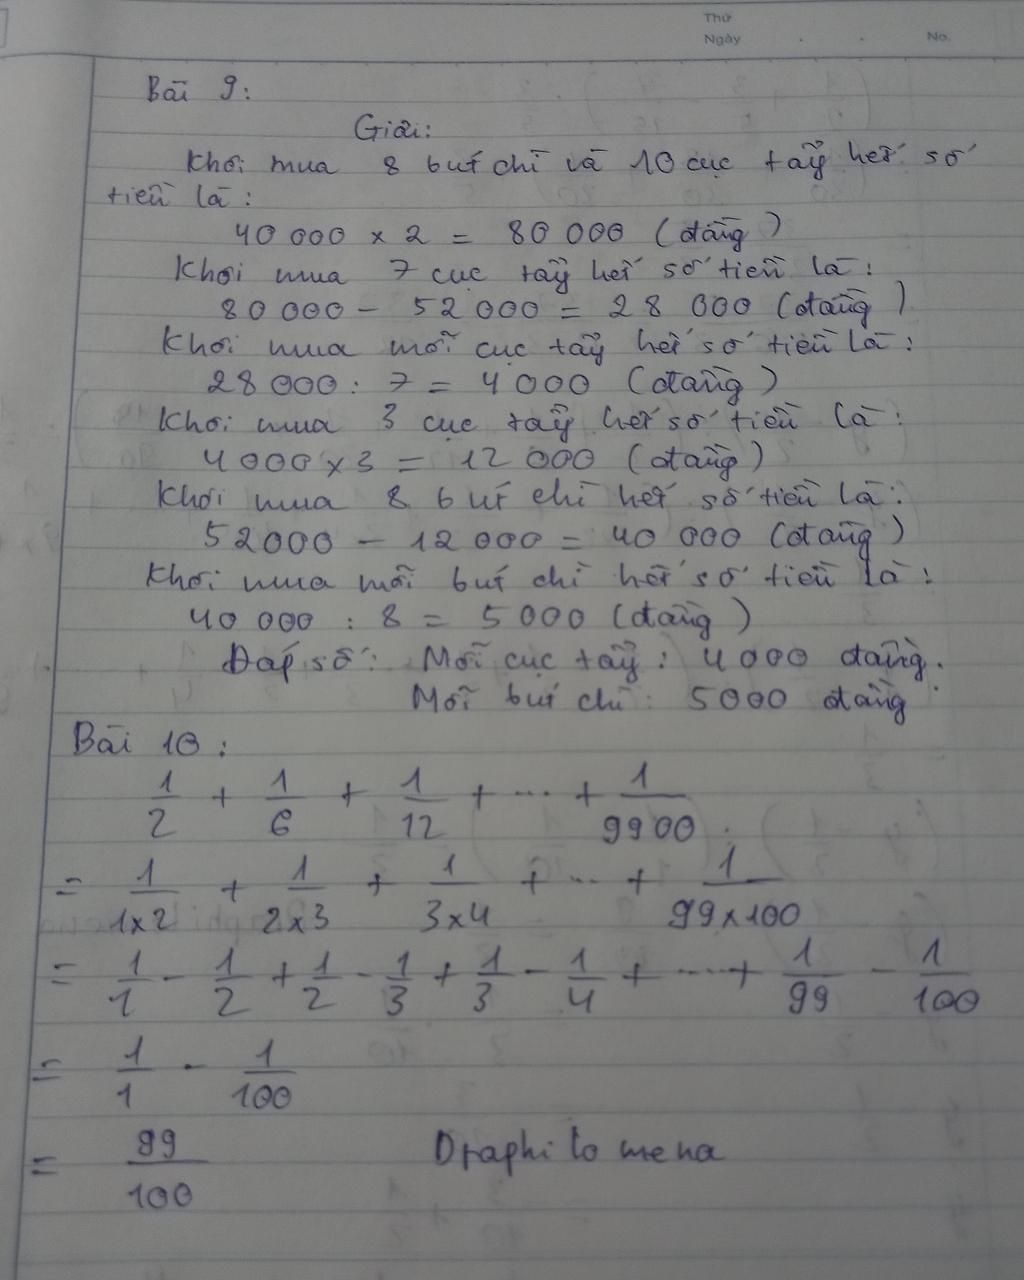 Thứ
Ngày . . No.
Bài 9:
Giải:
Khôi mua 8 bút chì và 10 cục tẩy hết số
tiền là:
40 000 x 2 = 80 000 (đồng)
Khôi mua 7 cục tẩy hết số tiền là:
80 000 - 52 000 = 28 000 (đồng)
Khôi mua mỗi cục tẩy hết số tiền là:
28 000 : 7 = 4 000 (đồng)
Khôi mua 3 cục tẩy hết số tiền là:
4 000 x 3 = 12 000 (đồng)
Khôi mua 8 bút chì hết số tiền là:
52000 - 12 000 = 40 000 (đồng)
Khôi mua mỗi bút chì hết số tiền là:
40 000 : 8 = 5 000 (đồng)
Đáp số: Mỗi cục tẩy: 4 000 đồng.
Mỗi bút chì: 5000 đồng
Bài 10:
1/2 + 1/6 + 1/12 + ... + 1/9900
= 1/1x2 + 1/2x3 + 1/3x4 + ... + 1/99x100
= 1/1 - 1/2 + 1/2 - 1/3 + 1/3 - 1/4 + ... + 1/99 - 1/100
= 1/1 - 1/100
= 99/100 Draphilo mena